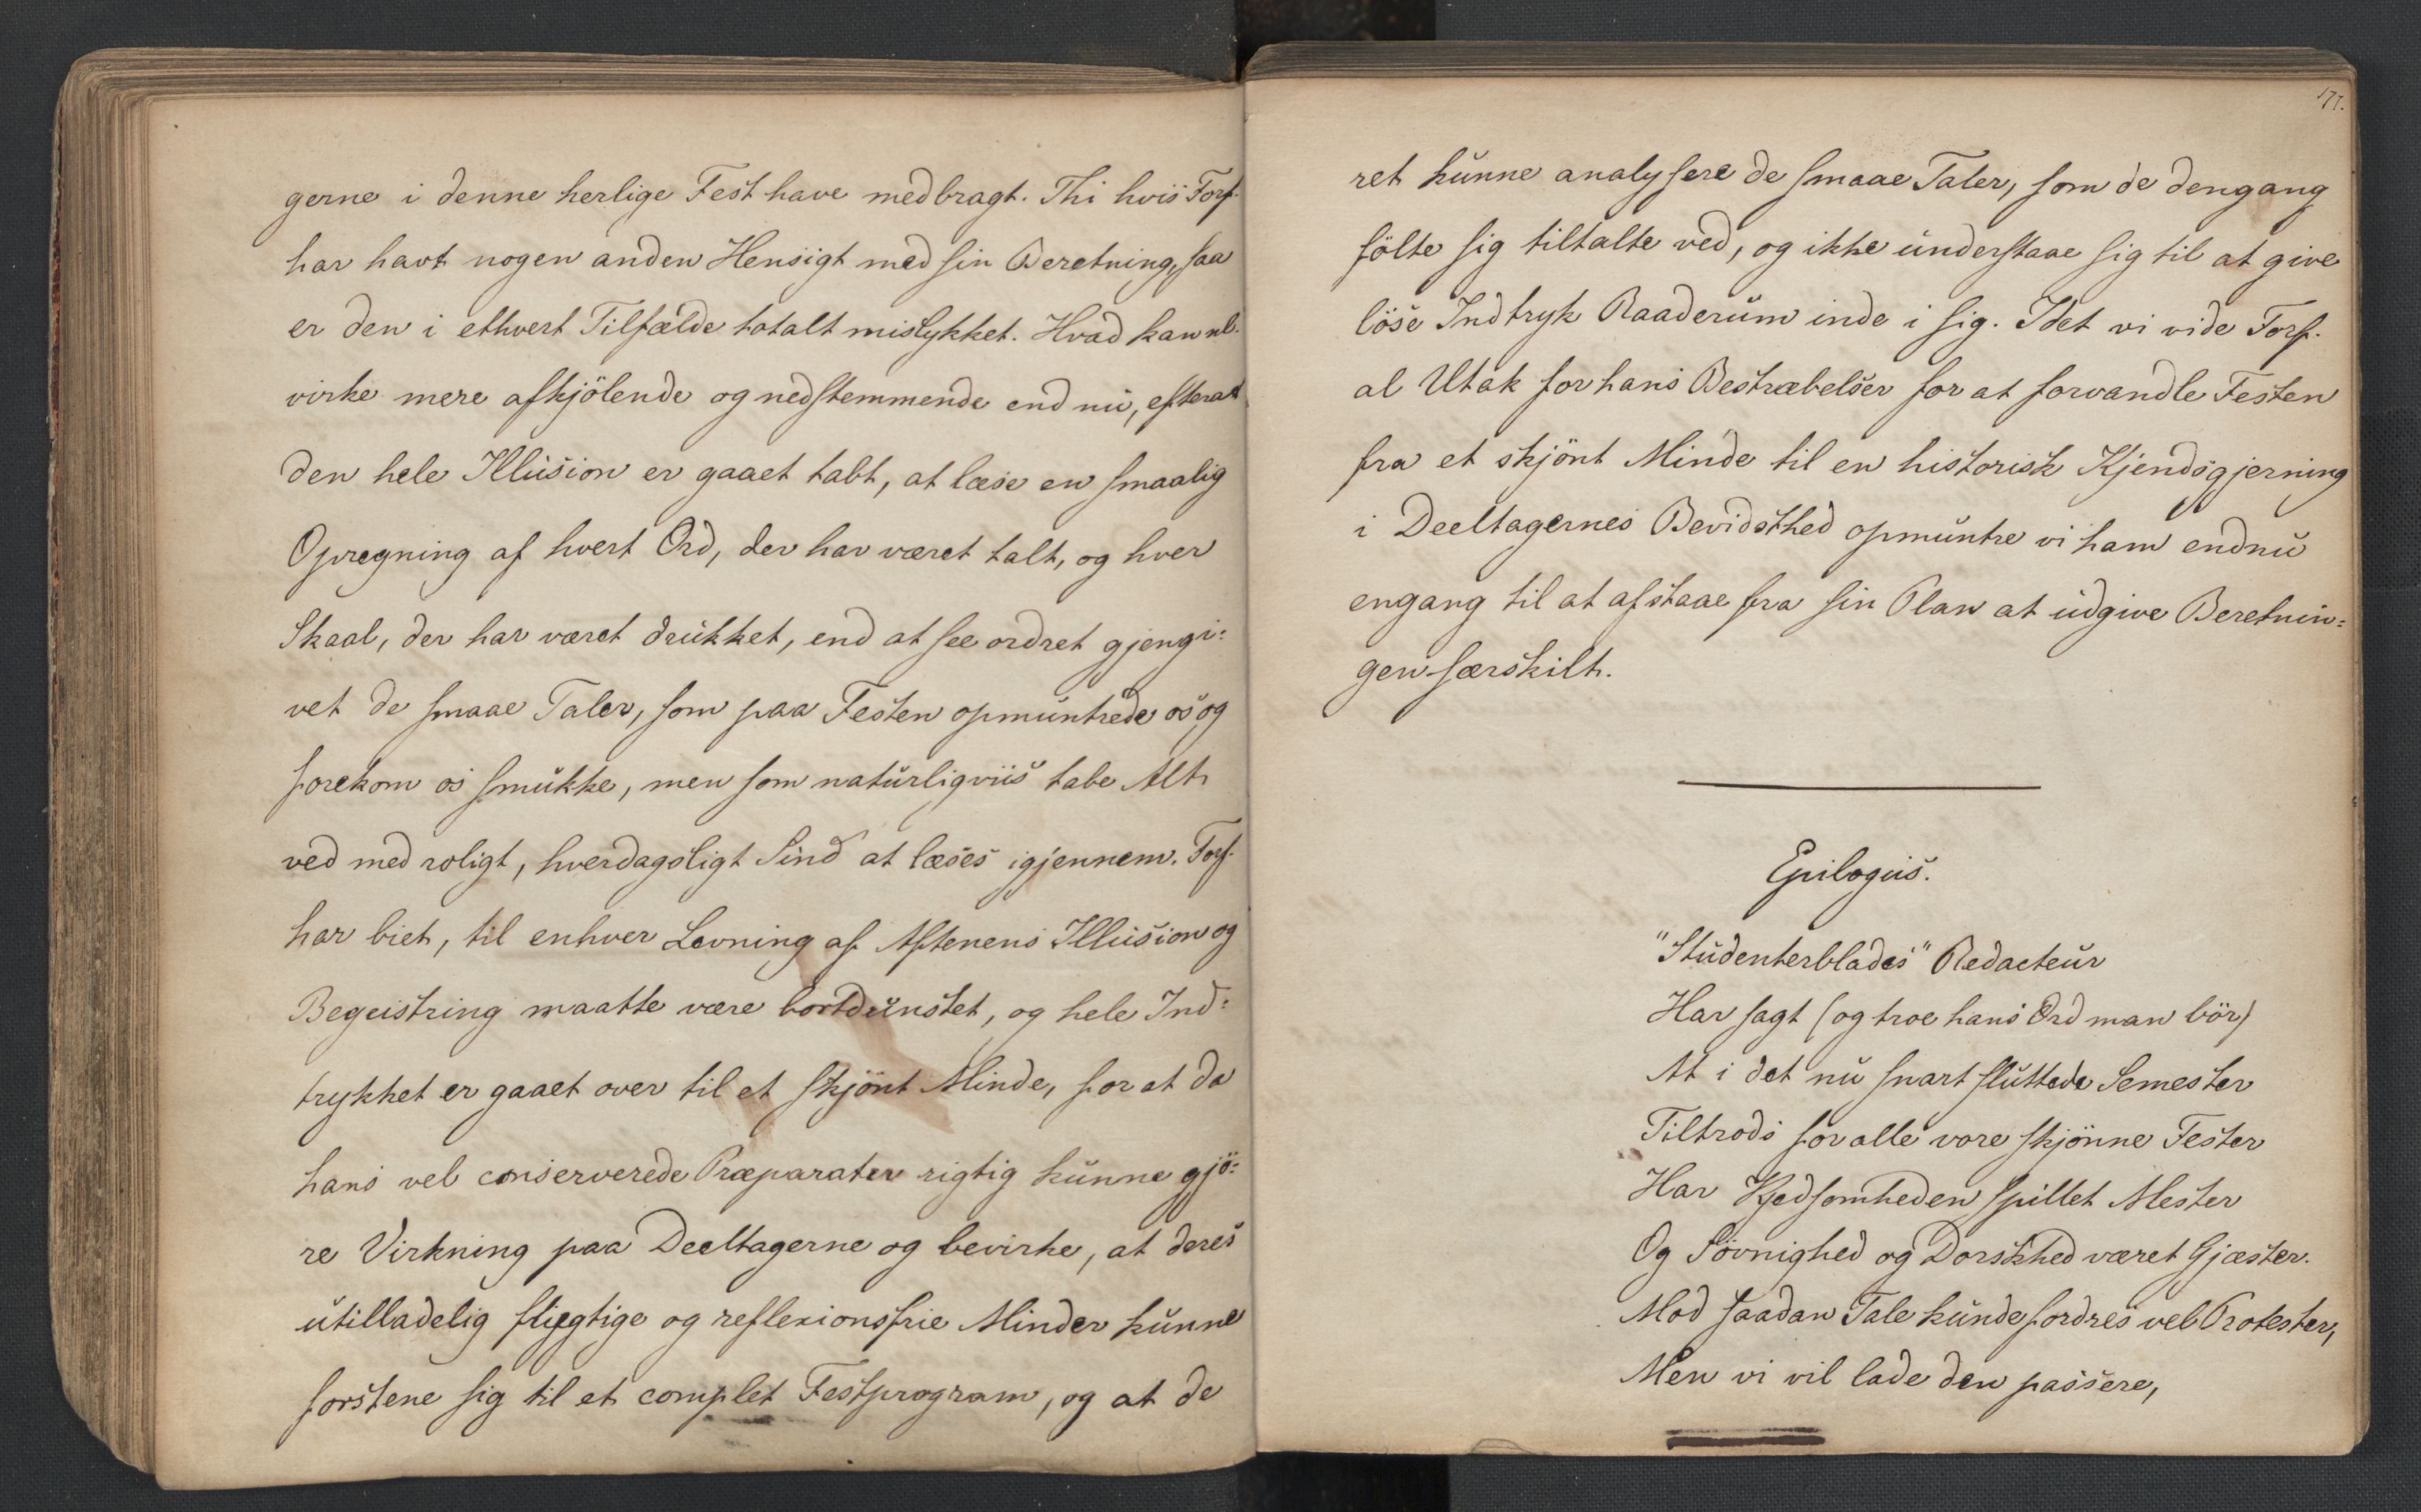 gerne i denne herlige Fest have medbragt. Thi hvis Forf.
har havt nogen anden Hensigt med sin Beretning, saa
er den i ethvert Tilfælde totalt mislykket. Hvad kan vel
virke mere afkjölende og nedstemmende end nu, efterat
den hele Illusion er gaaet tabt, at læse en smaalig
Opregning af hvert Ord, der har været talt, og hver
Skaal, der har været drukket, end at see ordret gjengi=
vet de smaae Taler, som paa Festen opmuntrede os og
forekom os smukke, men som naturligviis tabe Alt
ved med roligt, hverdagsligt Sind at læses igjennem. Forf.
har biet, til enhver Levning af Aftenens Illusion og
Begeistring maatte være bortdunstet, og hele Ind=
trykket er gaaet over til et skjönt Minde, for at da
hans vel conserverede Præparater rigtig kunne gjö=
re Virkning paa Deeltagerne og bevirke, at deres
utilladelig flygtige og reflexionsfrie Minder kunne
forstene sig til et complet Festprogram, og at de
177.
ret kunne analysere de smaae Taler, som de dengang
fölte sig tiltalte ved, og ikke understaae sig til at give
löse Indtryk Raaderum inde i sig. Idet vi vide Forf.
al Utak for hans Bestræbelser for at forvandle Festen
fra et skjönt Minde til en historisk Kjendsgjerning
i Deeltagernes Bevidsthed opmuntre vi ham endnu
engang til at afstaae fra sin Plan at udgive Beretnin=
gen særskilt.
Epilogus.
"Studenterblades" Redacteur
Har sagt (og troe hans Ord man bör)
At i det nu snart sluttede Semester
Tiltrods for alle vore skjönne Fester
Har Kjedsomheden spillet Mester
Og Sövnighed og Dorskhed været Gjæster.
Mod saadan Tale kunde fordres vel Protester,
Men vi vil lade den passere,